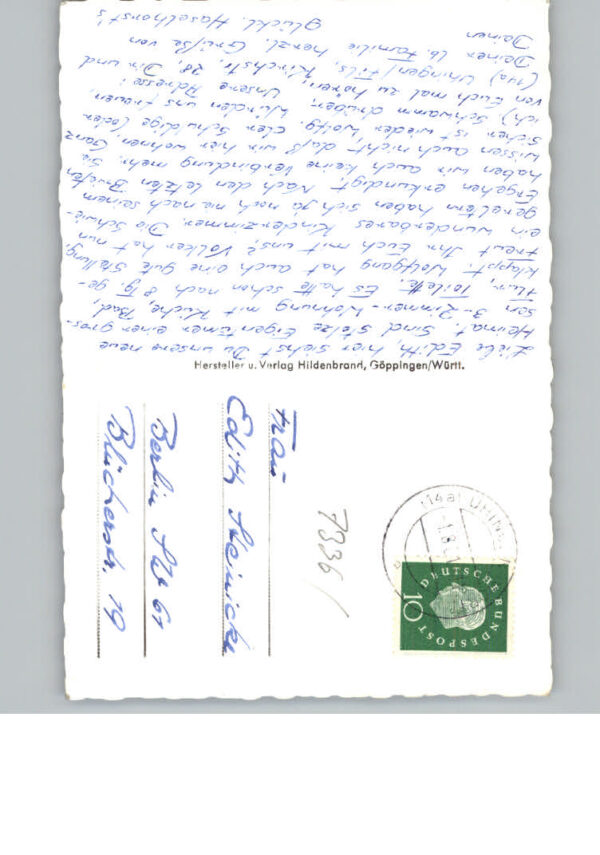 Liebe Edith, hier siehst Du unsere neue
Heimat. Sind stolze Eigentümer einer gros-
sen 3-Zimmer-Wohnung mit Küche, Bad,
Flur, Toilette. Es hatte schon nach 8 Tg. ge-
klappt. Wolfgang hat auch eine gute Stellung,
freut Ihr Euch mit uns? Volker hat nun
ein wunderbares Kinderzimmer. Die Schwie-
gereltern haben sich ja noch nie nach seinem
Ergehen erkundigt. Nach den letzten Briefen
haben wir auch keine Verbindung mehr. Sie
wissen auch nicht, daß wir hier wohnen. Ganz
sicher ist wieder Wolfg. der Schuldige (oder
ich). Schwamm drüber. Würden uns freuen,
von Euch mal zu hören. Unsere Adresse:
(14a) Uhingen/Fils, Kirchstr. 28, Dir und
Deiner lb. Familie herzl. Grüße von
Deinen
glückl. Haselhorst's
Hersteller u. Verlag Hildenbrand, Göppingen/Württ.
Frau
Edith Heinicke
Berlin SW 61
Blücherstr. 19
7336/
(14a) UHINGEN
DEUTSCHE BUNDESPOST
10